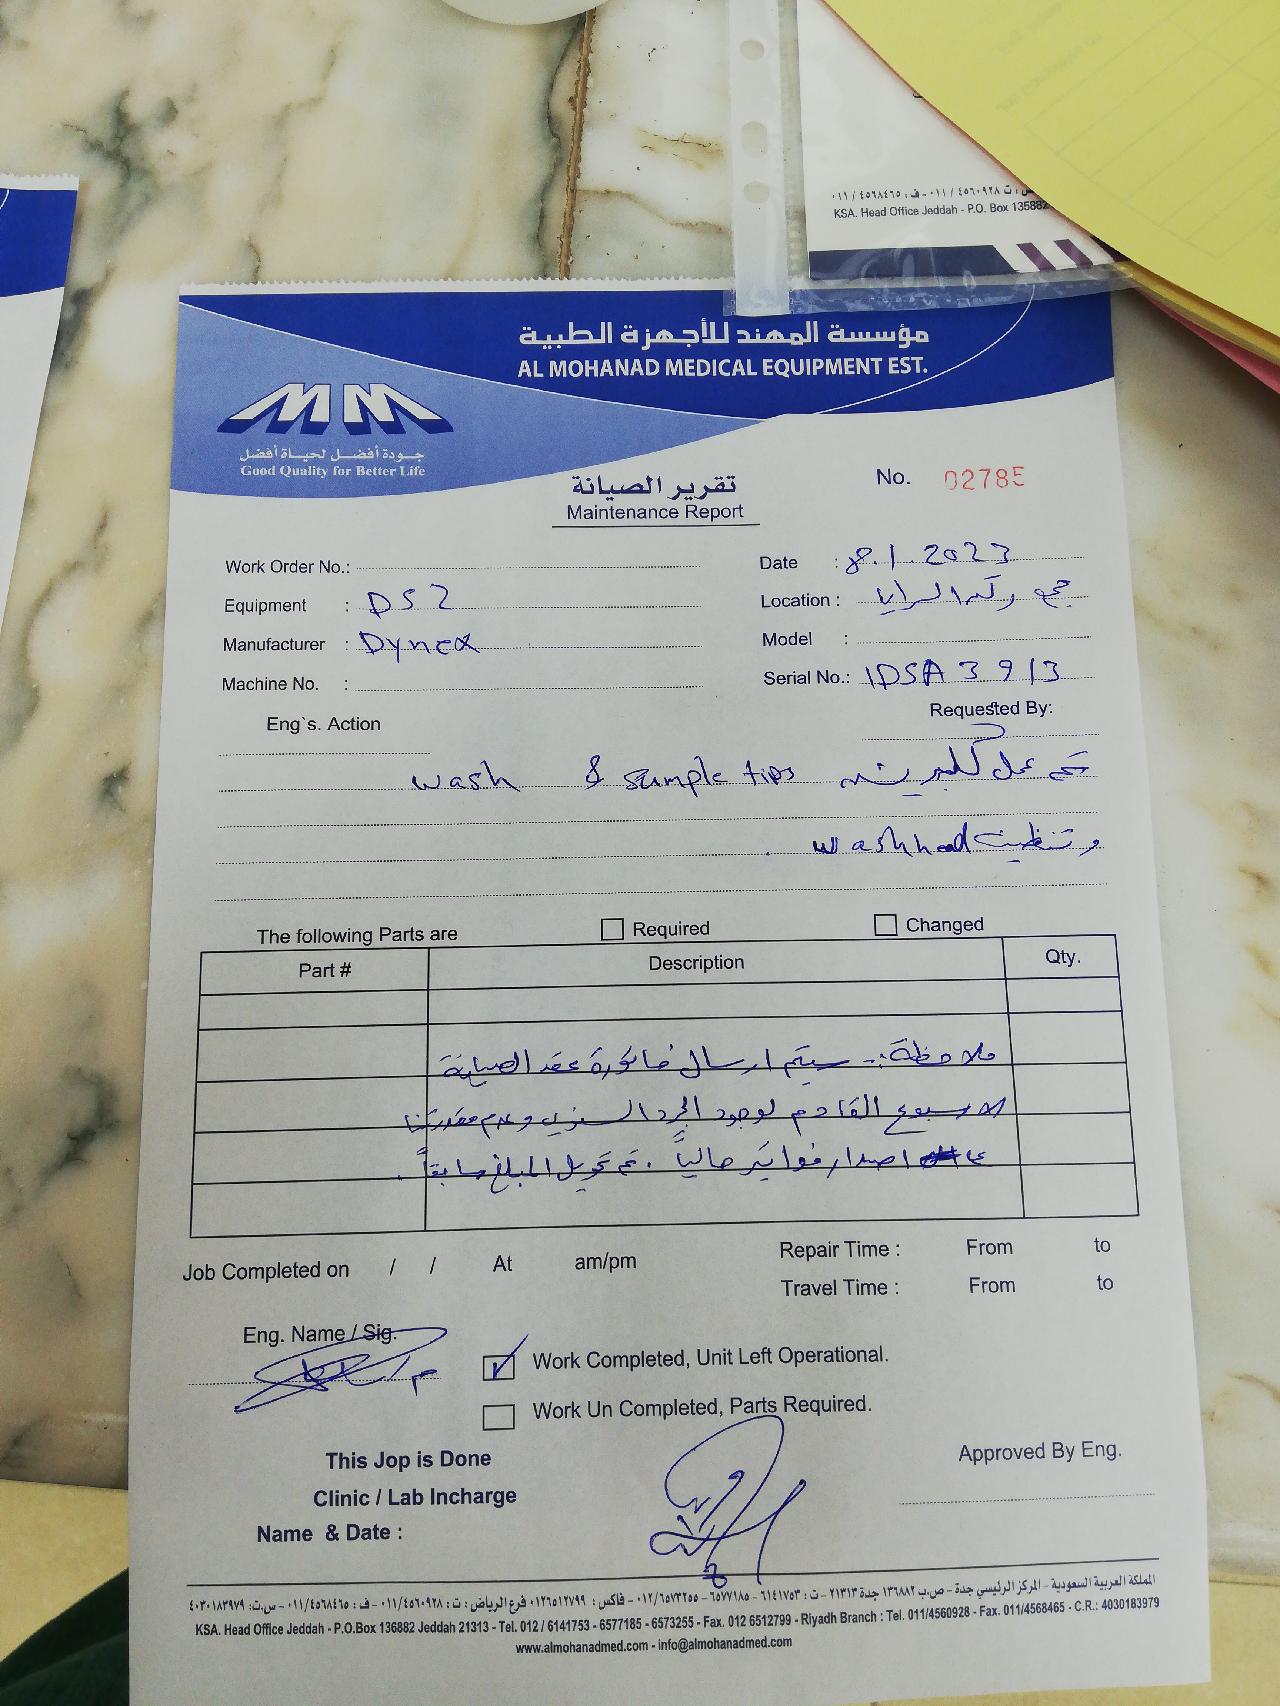 س : ت ٠١١/٤٥٦٠٩٢٨ - ف : ٠١١/٤٥٦٨٤٦٥
KSA. Head Office Jeddah - P.O. Box 135882
مؤسسة المهند للأجهزة الطبية
AL MOHANAD MEDICAL EQUIPMENT EST.
MM
جودة أفضل لحياة أفضل
Good Quality for Better Life
تقرير الصيانة
Maintenance Report
No. 02785
Work Order No.:
Date : 8.1.2023
Equipment : DS2
Location :
Manufacturer : Dynex
Model :
Machine No. :
Serial No.: 1DSA 3913
Eng`s. Action
Requested By:
تم عمل كلبريشن wash & sample tips
وتنظيف wash head .
The following Parts are Required Changed
Part # Description Qty.
ملاحظة :- سيتم ارسال فاتورة عقد الصيانة
الاسبوع القادم لوجود الجرد السنوي وعدم مقدرتنا
اصدار فواتير حالياً . تم تحويل المبلغ سابقاً .
Job Completed on / / At am/pm
Repair Time : From to
Travel Time : From to
Eng. Name / Sig.
Work Completed, Unit Left Operational.
Work Un Completed, Parts Required.
This Jop is Done
Clinic / Lab Incharge
Name & Date :
Approved By Eng.
المملكة العربية السعودية - المركز الرئيسي جدة - ص.ب ١٣٦٨٨٢ جدة ٢١٣١٣ - ت : ٦١٤١٧٥٣ - ٦٥٧٧١٨٥ - ٠١٢/٦٥٧٣٢٥٥ - فاكس : ٠١٢٦٥١٢٧٩٩ فرع الرياض : ت : ٠١١/٤٥٦٠٩٢٨ - ف : ٠١١/٤٥٦٨٤٦٥ - س.ت: ٤٠٣٠١٨٣٩٧٩
KSA. Head Office Jeddah - P.O.Box 136882 Jeddah 21313 - Tel. 012 / 6141753 - 6577185 - 6573255 - Fax. 012 6512799 - Riyadh Branch : Tel. 011/4560928 - Fax. 011/4568465 - C.R.: 4030183979
www.almohanadmed.com - info@almohanadmed.com